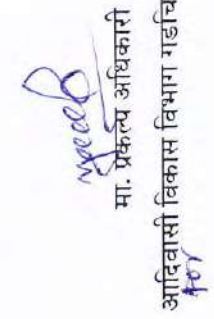 मा. प्रकल्प अधिकारी
आदिवासी विकास विभाग गडचि
for